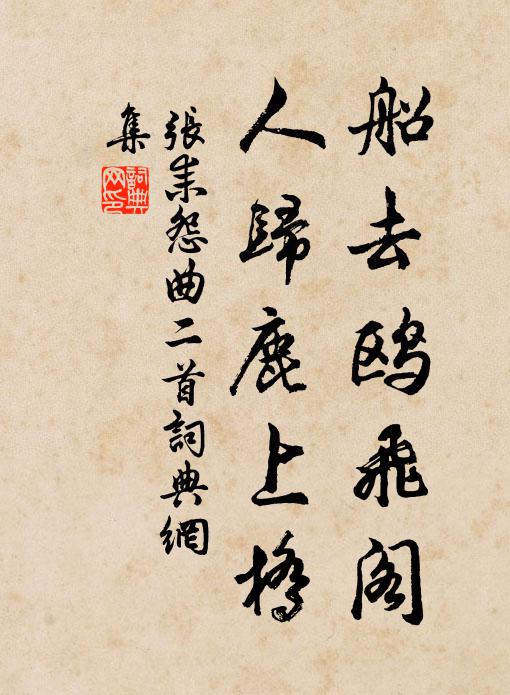 船去鷗飛閣
人歸鹿上橋
張耒怨曲二首詞典網
集
詞典
网印